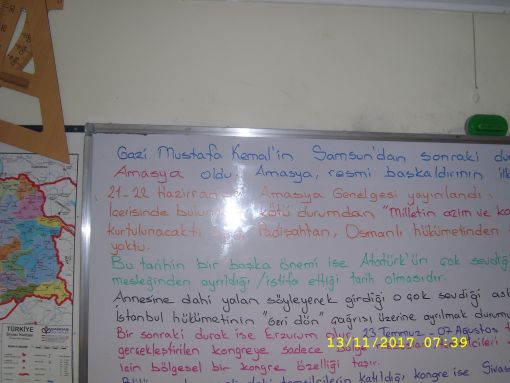 Gazi Mustafa Kemal'in Samsun'dan sonraki
Amasya oldu. Amasya, resmi başkaldırının
21-22 Haziran Amasya Genelgesi yayınlandı.
İçerisinde kötü durumdan "Milletin azim ve
kurtulunacaktı padişahtan, Osmanlı hükümetinden
yoktu.
Bu tarihin bir başka önemi ise Atatürk'ün çok sevdiği
mesleğinden ayrıldığı / istifa ettiği tarih olmasıdır.
Annesine dahi yalan söyleyerek girdiği o çok sevdiği
İstanbul hükümetinin "Geri dön" çağrısı üzerine ayrılmak
Bir sonraki durak ise Erzurum oldu. 23 Temmuz - 07 Ağustos
gerçekleştirilen kongreye sadece
için bölgesel bir kongre özelliği taşır.
katıldığı kongre ise Sivas
TÜRKİYE
13/11/2017 07:39